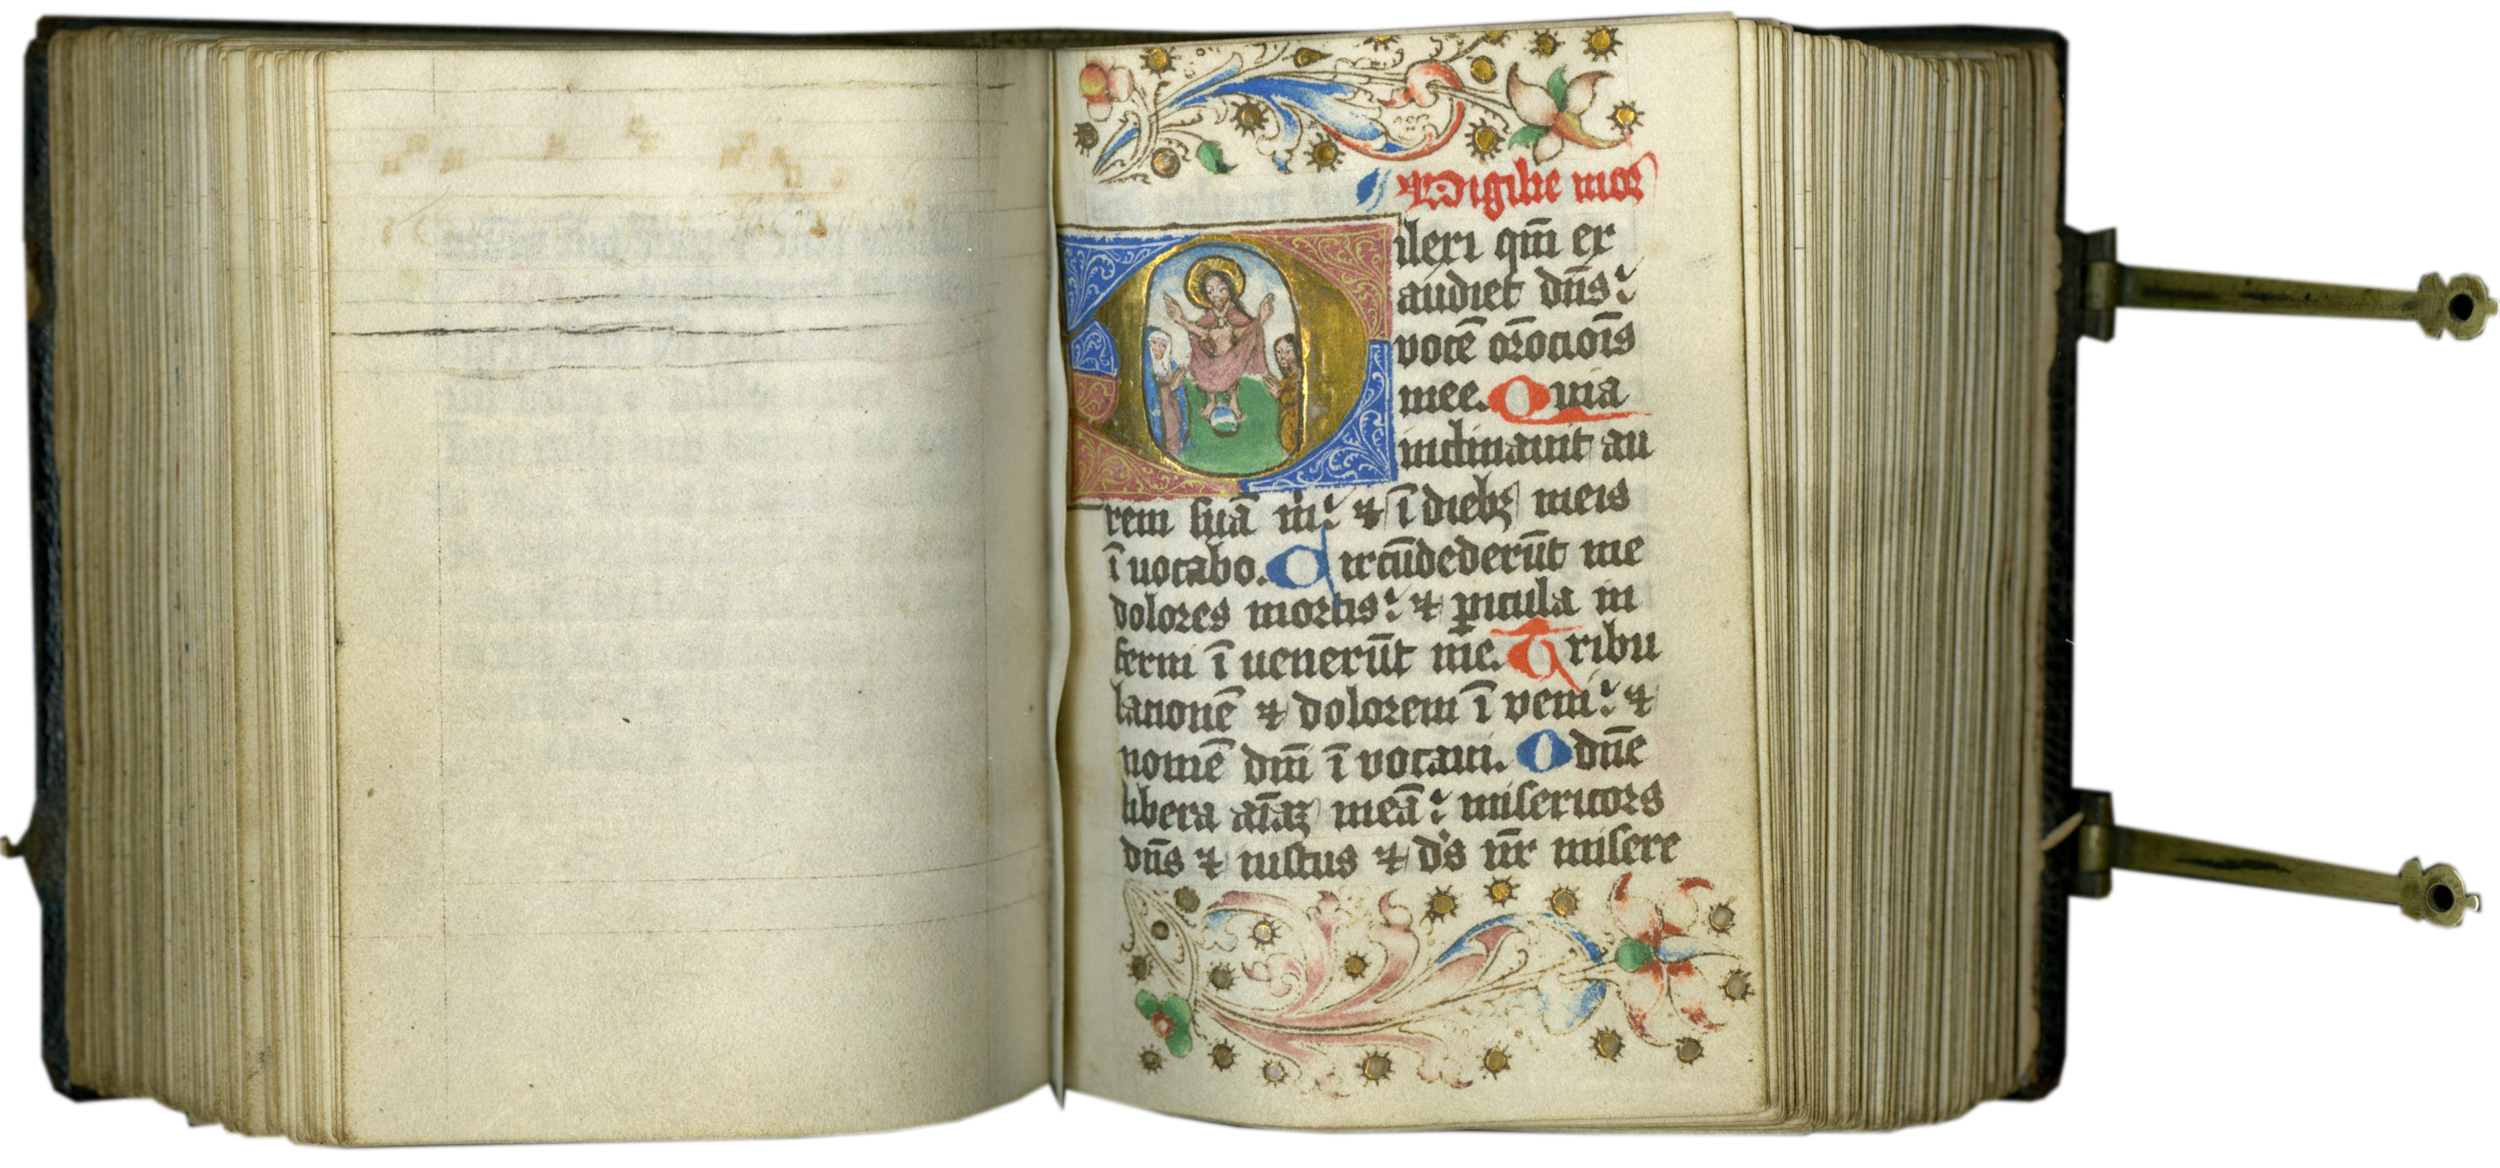 Vigilie mor
D ilexi qm̄ ex
audiet dn̄s
vocē orōcioīs
mee. Quia
inclinauit au
rem suā m̄ & ī dieb₃ meis
ī uocabo. Circūdederūt me
dolores mortis & ꝑicula in
ferni ī uenerūt me. Tribu
lacionē & dolorem ī veni &
nomē dn̄i ī vocaui. O dn̄e
libera aīaꝫ meā misericors
dn̄s & iustus & ds n̄r misere